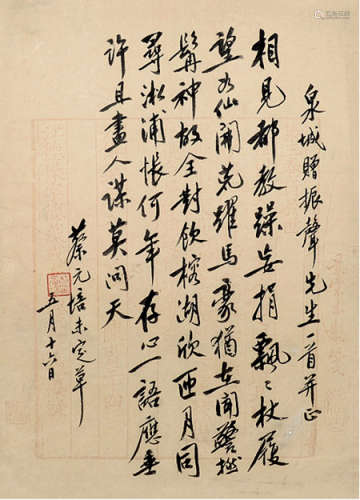 泉城贈振聲先生一首并正
相見都教躁妄捐飄〻杖履
望如仙閒荒躍馬豪猶在聞警
髯神故全對飲榕湖欣匝月同
尋淞浦悵何年存心一語應垂
許且盡人謀莫問天
蔡元培未定草
五月十六日